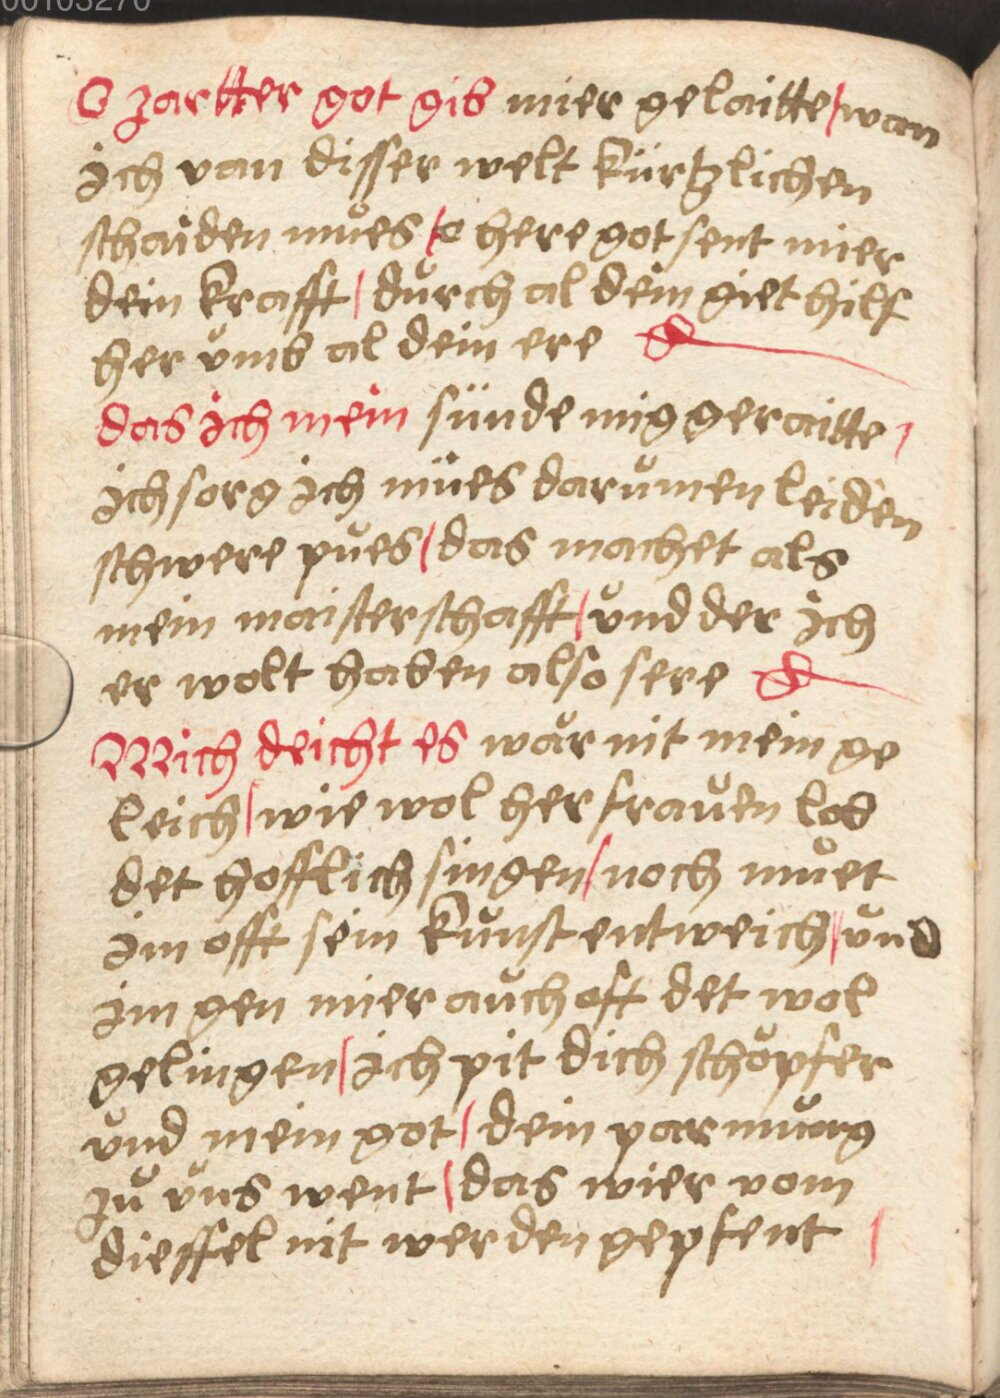 00103270
O zartter got gib mier gelaitte / wan
ich van disser welt kürtzlichen
schaiden můes / o here got sent mier
dein krafft / důrch al dein giet hilf
her ůmb al dein ere
das ich mein sünde mig geraitte /
ich sorg ich mües darůmen leiden
schwere půes / das machet als
mein maisterschafft / ůnd der ich
er wolt haben also sere
Mich deicht es wår nit mein ge
leich / wie wol her fraůen lob
det hofflich singen / noch můet
im offt sein kůnst entweich / ůnd
im gen mier aůch oft det wol
gelingen / ich pit dich schöpfer
ůnd mein got / dein parmůng
zů ůns went / das wier vom
dieffel nit werden gepfent /